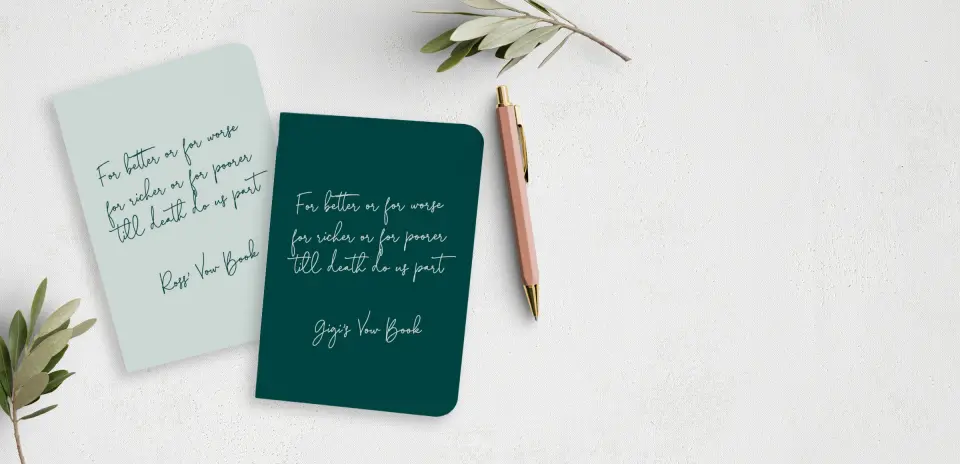 For better or for worse
for richer or for poorer
till death do us part
Ross' Vow Book
For better or for worse
for richer or for poorer
till death do us part
Gigi's Vow Book